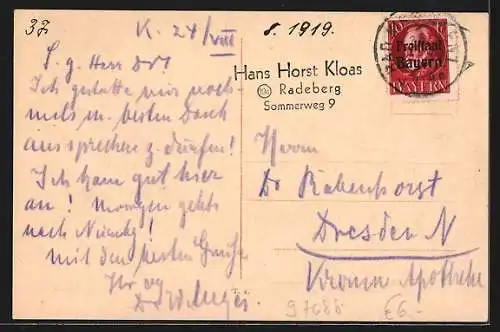 37
K. 24/VIII
8. 1919.
S. g. Herr Dr!
Ich gestatte mir noch
mals m. besten Dank
aussprechen z. dürfen!
Ich kam gut hier
an! Morgen gehts
nach
mit den besten Grüße
Ihr
Dr
Hans Horst Kloas
(10a) Radeberg
Sommerweg 9
10
Freistaat
Bayern
BAYERN
Herrn
Dr Rabenhorst
Dresden N
Kronen Apotheke
97688
€6.-